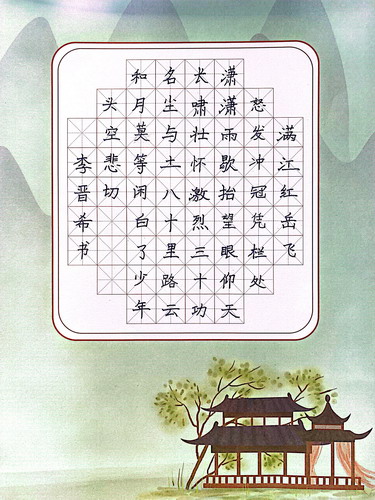 满江红岳飞
怒发冲冠凭栏处
潇潇雨歇抬望眼仰天
长啸壮怀激烈三十功
名尘与土八十里路云
和月莫等闲白了少年
头空悲切
李晋希书